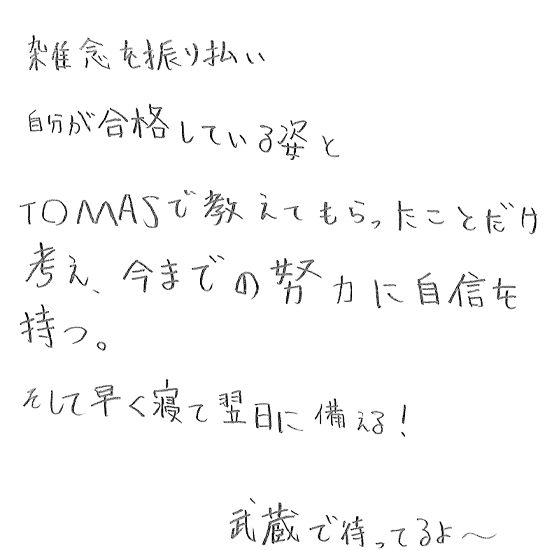 雑念を振り払い
自分が合格している姿と
TOMASで教えてもらったことだけ
考え、今までの努力に自信を
持つ。
そして早く寝て翌日に備える!
武蔵で待ってるよ〜